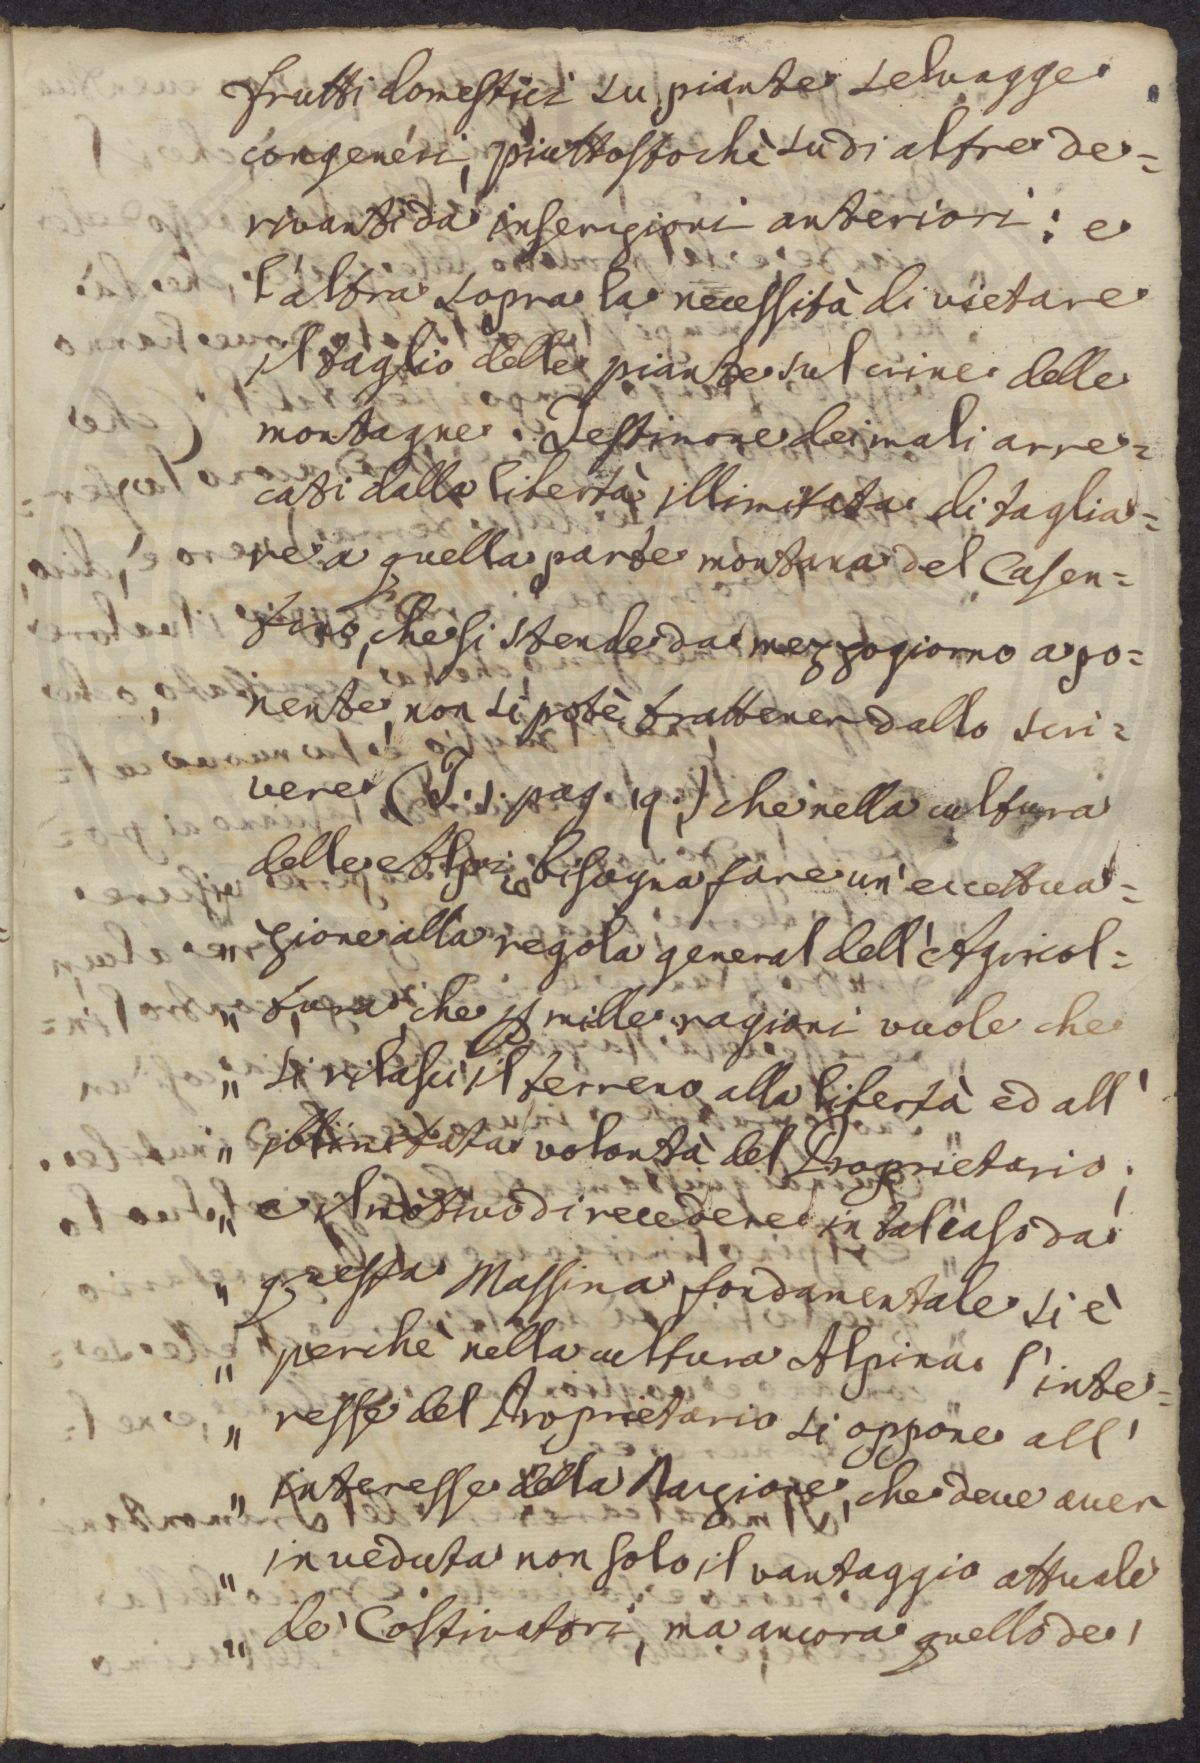 frutti domestici su piante selvagge
congeneri, piuttostochè su di altre de=
rivanti da inserzioni anteriori: e
l'altra sopra la necessità di vietare
il taglio delle piante sul crine delle
montagne. Testimone dei mali arre=
cati dalla libertà illimitata di taglia=
re a quella parte montana del Casen=
tino, che si stende da mezzogiorno a po=
nente, non si potè trattener dallo scri=
vere (T. 1. pag. 19.) che nella cultura
delle Alpi " bisogna fare un' eccettua=
" zione alla regola general dell'Agricol=
" tura, che p mille ragioni vuole che
" si rilasci il terreno alla libertà ed all'
" illimitata volontà del Proprietario;
" e il motivo di recedere in tal caso da
" questa Massima fondamentale si è
" perchè nella cultura Alpina l'inte=
" resse del Proprietario si oppone all'
" interesse della Nazione, che deve aver
" in veduta non solo il vantaggio attuale
" de' Coltivatori, ma ancora quello de'